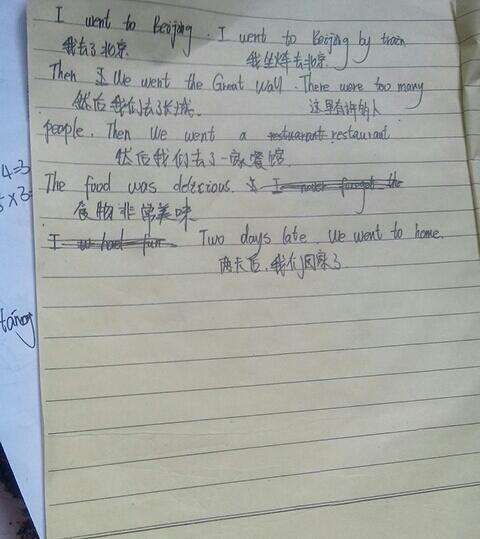 I went to Beijing. I went to Beijing by train
我去了北京. 我坐火车去北京.
Then I We went the Great Wall. There were too many
然后我们去了长城. 这里有许多人
people. Then We went a restuarant restaurant
然后我们去了一家餐馆
4=3
The food was delicious. I I never forget the
食物非常美味
I had fun Two days late. We went to home.
两天后,我们回家了